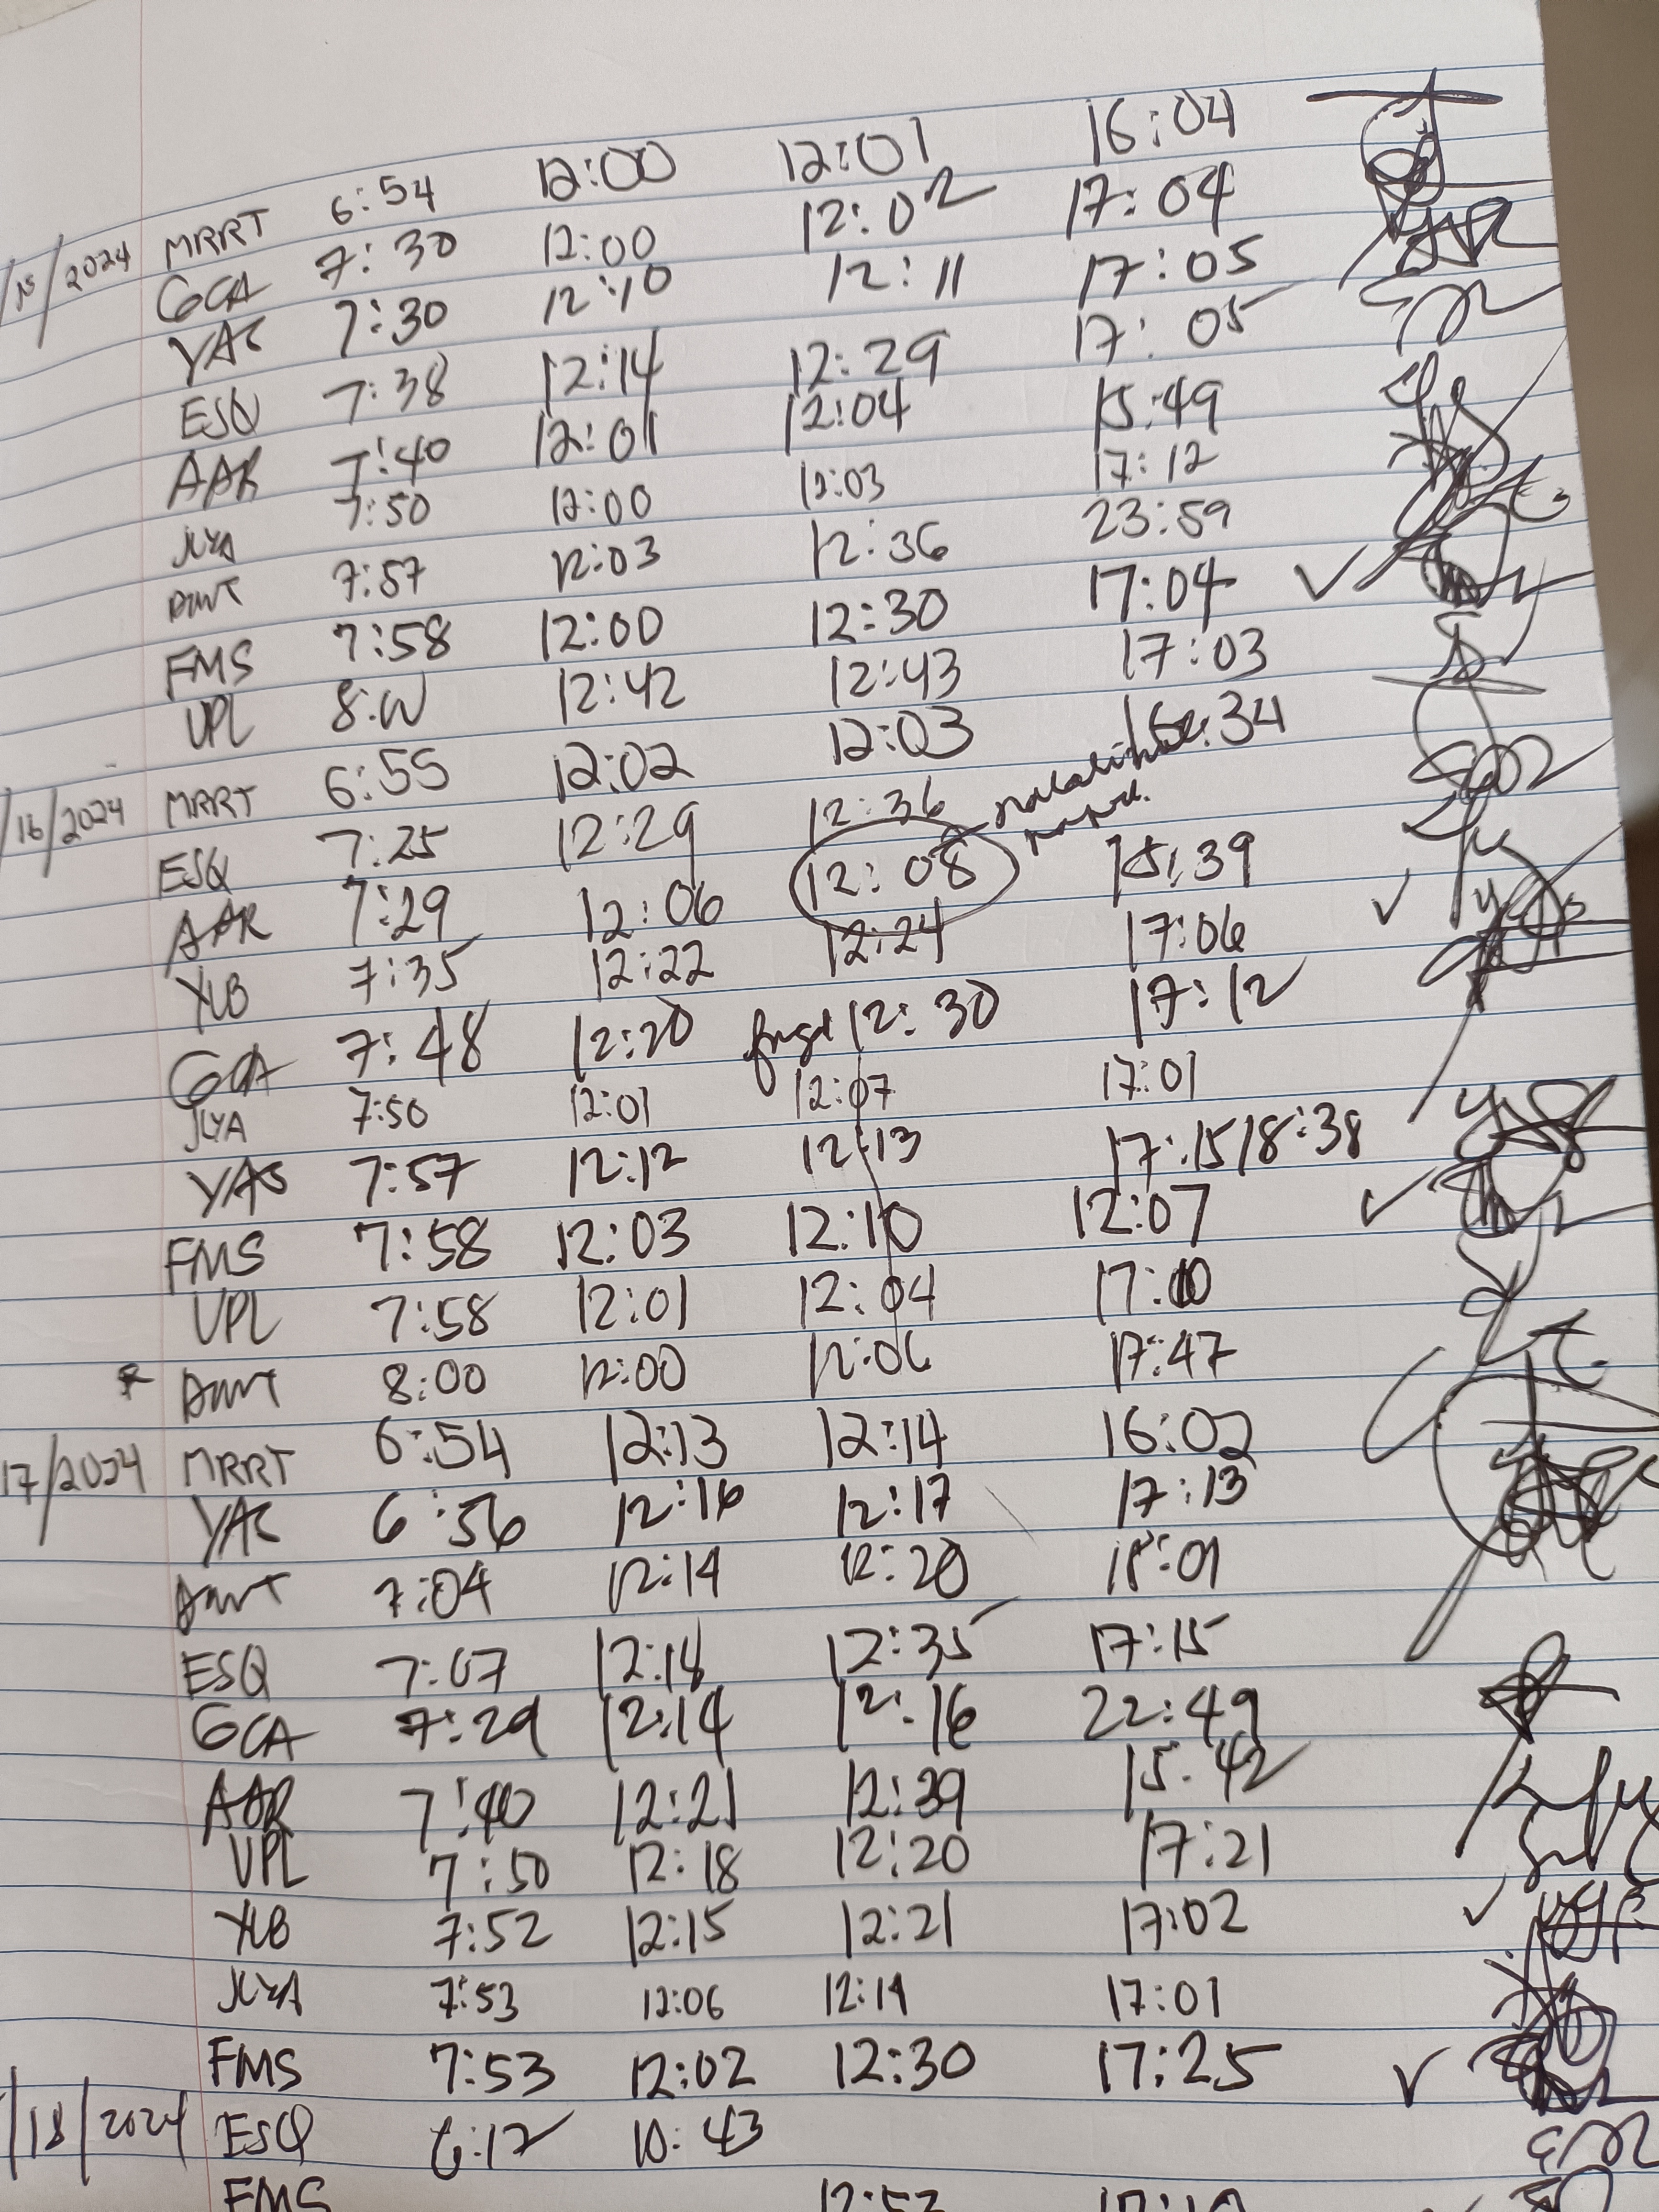 /15/2024 MRRT 6:54 12:00 12:01 16:04
GCA 7:30 12:00 12:02 17:04
YAC 7:30 12:10 12:11 17:05
ESQ 7:38 12:14 12:29 17:05
AAR 7:40 12:01 12:04 15:49
JLYA 7:50 12:00 12:03 17:12
7:57 12:03 12:36 23:59
FMS 7:58 12:00 12:30 17:04
UPL 8:00 12:42 12:43 17:03
/16/2024 MRRT 6:55 12:02 12:03 :34
ESQ 7:25 12:29 12:36
AAR 7:29 12:06 12:08 15:39
YLB 7:35 12:22 12:24 17:06
GCA 7:48 12:20 12:30 17:12
JLYA 7:50 12:01 12:07 17:01
YAC 7:57 12:12 12:13 17:15/18:38
FMS 7:58 12:03 12:10 12:07
UPL 7:58 12:01 12:04 17:00
8:00 12:00 12:06 17:47
17/2024 MRRT 6:54 12:13 12:14 16:02
YAC 6:56 12:16 12:17 17:13
7:04 12:14 12:20 18:01
ESQ 7:07 12:18 12:35 17:15
GCA 7:29 12:14 12:16 22:49
AAR 7:40 12:21 12:39 15:42
UPL 7:50 12:18 12:20 17:21
YLB 7:52 12:15 12:21 17:02
JLYA 7:53 12:06 12:14 17:01
FMS 7:53 12:02 12:30 17:25
/18/2024 ESQ 6:12 10:43
FMS 12:53